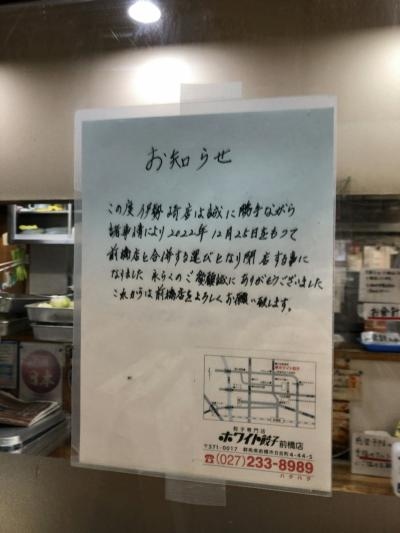 お知らせ
この度伊勢崎店は誠に勝手ながら
諸事情により2022年12月25日をもって
前橋店と合併する運びとなり閉店する事に
なりました 永らくのご愛顧誠にありがとうございました
これからは前橋店をよろしくお願い致します。
餃子専門店
ホワイト餃子 前橋店
〒371-0017 群馬県前橋市日吉町4-44-5
☎(027)233-8989
ハクハク